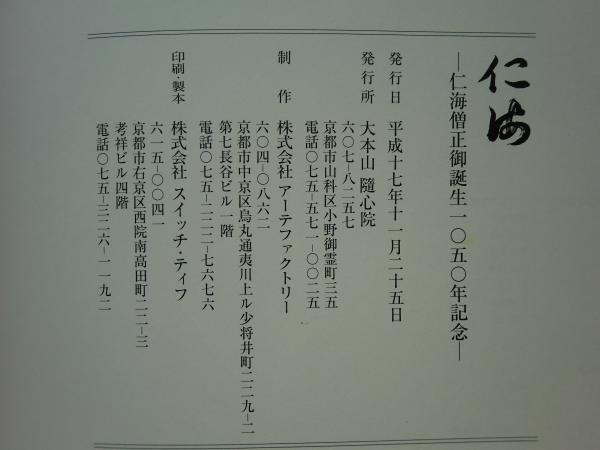 仁海
―仁海僧正御誕生一〇五〇年記念―
発行日 平成十七年十一月二十五日
発行所 大本山 隨心院
六〇七-八二五七
京都市山科区小野御霊町三五
電話〇七五-五七一-〇〇二五
制作 株式会社 アーテファクトリー
六〇四-〇八六二
京都市中京区烏丸通夷川上ル少将井町二二九-二
第七長谷ビル一階
電話〇七五-二二二-七六七六
印刷・製本 株式会社 スイッチ・ティフ
六一五-〇〇四一
京都市右京区西院南高田町二二-三
考祥ビル四階
電話〇七五-三二六-一一九二